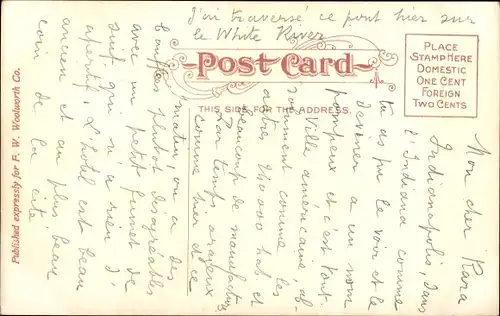 J'ai traversé ce pont hier sur
le White River
Post Card
THIS SIDE FOR THE ADDRESS.
PLACE
STAMP HERE
DOMESTIC
ONE CENT
FOREIGN
TWO CENTS
Published expressly for F. W. Woolworth Co.
Mon cher Papa
Indianapolis, dans
l'Indiana comme
tu as pu le voir et le
deviner a un nom
pompeux et c'est tout.
Ville américaine, ab-
solument comme les
autres 240000 hab et
beaucoup de manufactures
Par temps orageux
comme hier et ce
matin, on a des
bouffées plutôt désagréables
avec un petit fumet de
suif qui n'a rien d'
apéritif. L'hôtel est beau
ancien et au plus beau
coin de la cité